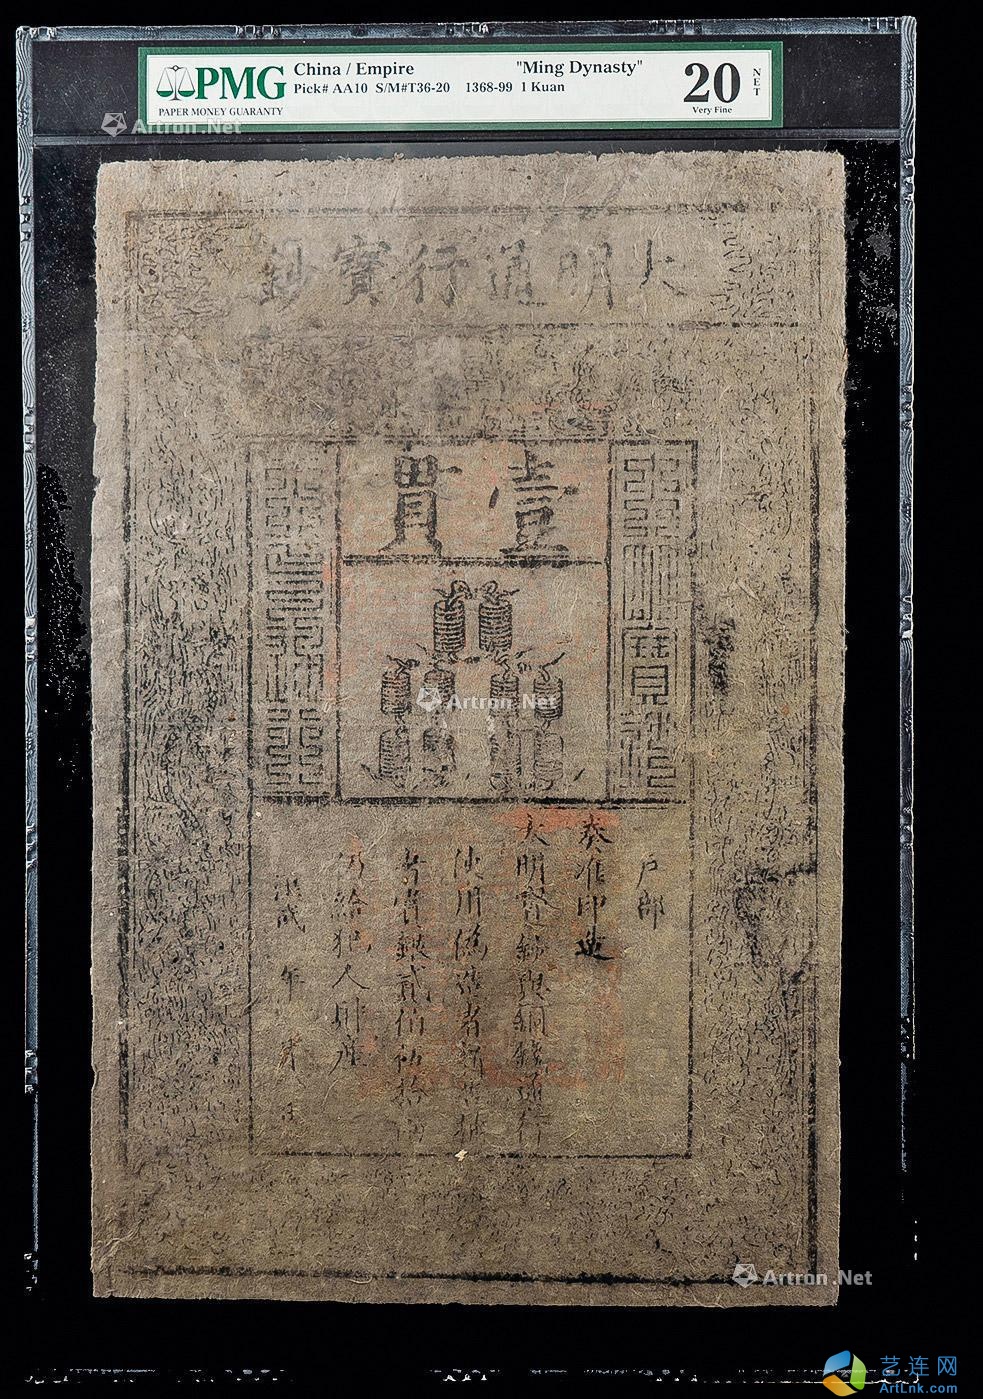 PMG
PAPER MONEY GUARANTY
China / Empire "Ming Dynasty"
Pick# AA10 S/M#T36-20 1368-99 1 Kuan
20
NET
Very Fine
Artron.Net
大明通行寶鈔
壹貫
Artron.Net
戶部
奏准印造
大明寶鈔與銅錢通行
使用偽造者斬告捕
者賞銀貳伯伍拾兩
仍給犯人財產
洪武 年 月
Artron.Net
艺连网
ArtLnk.com